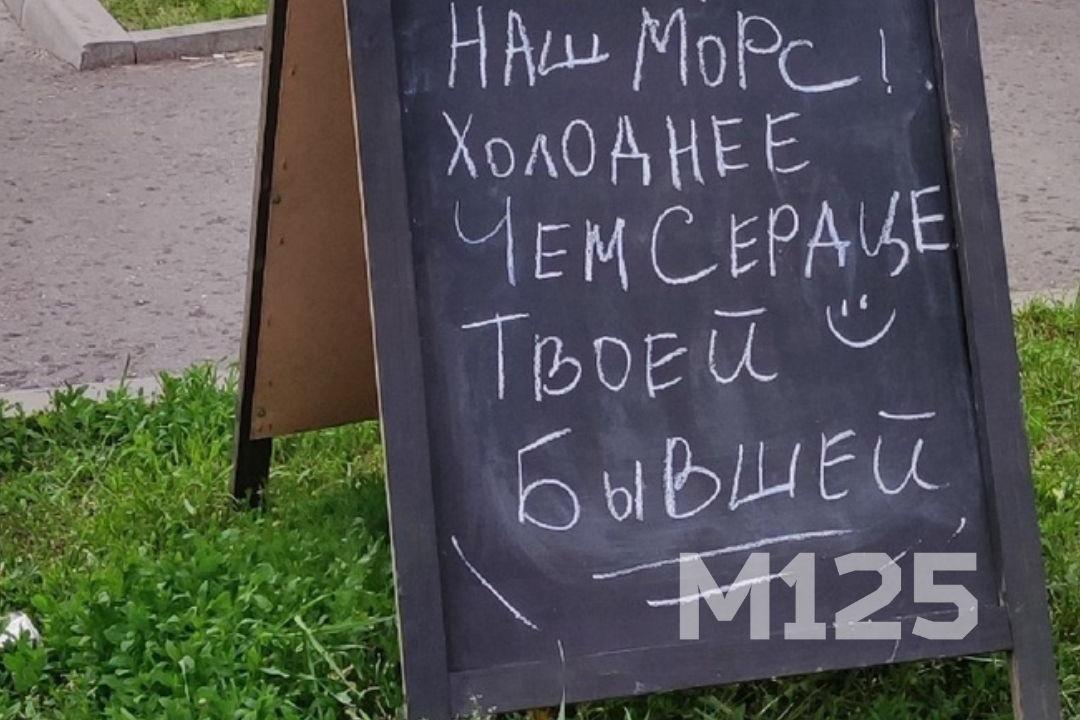 НАШ МОРС!
ХОЛОДНЕЕ
ЧЕМ СЕРДЦЕ
ТВОЕЙ
БЫВШЕЙ
М125